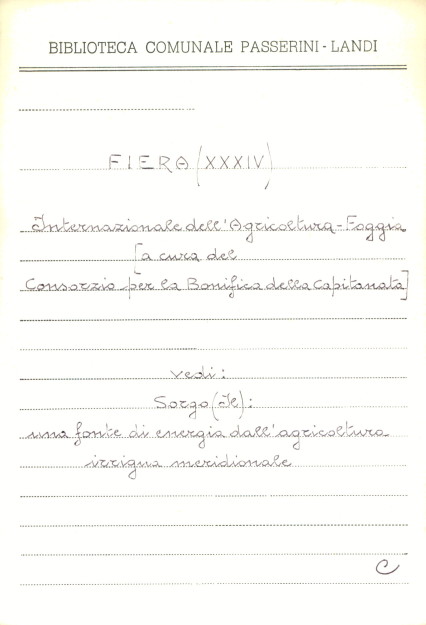 BIBLIOTECA COMUNALE PASSERINI - LANDI
FIERA (XXXIV)
Internazionale dell'Agricoltura - Foggia
[a cura del
Consorzio per la Bonifica della Capitanata]
vedi:
Sorgo (Il):
una fonte di energia dall'agricoltura
irrigua meridionale
C